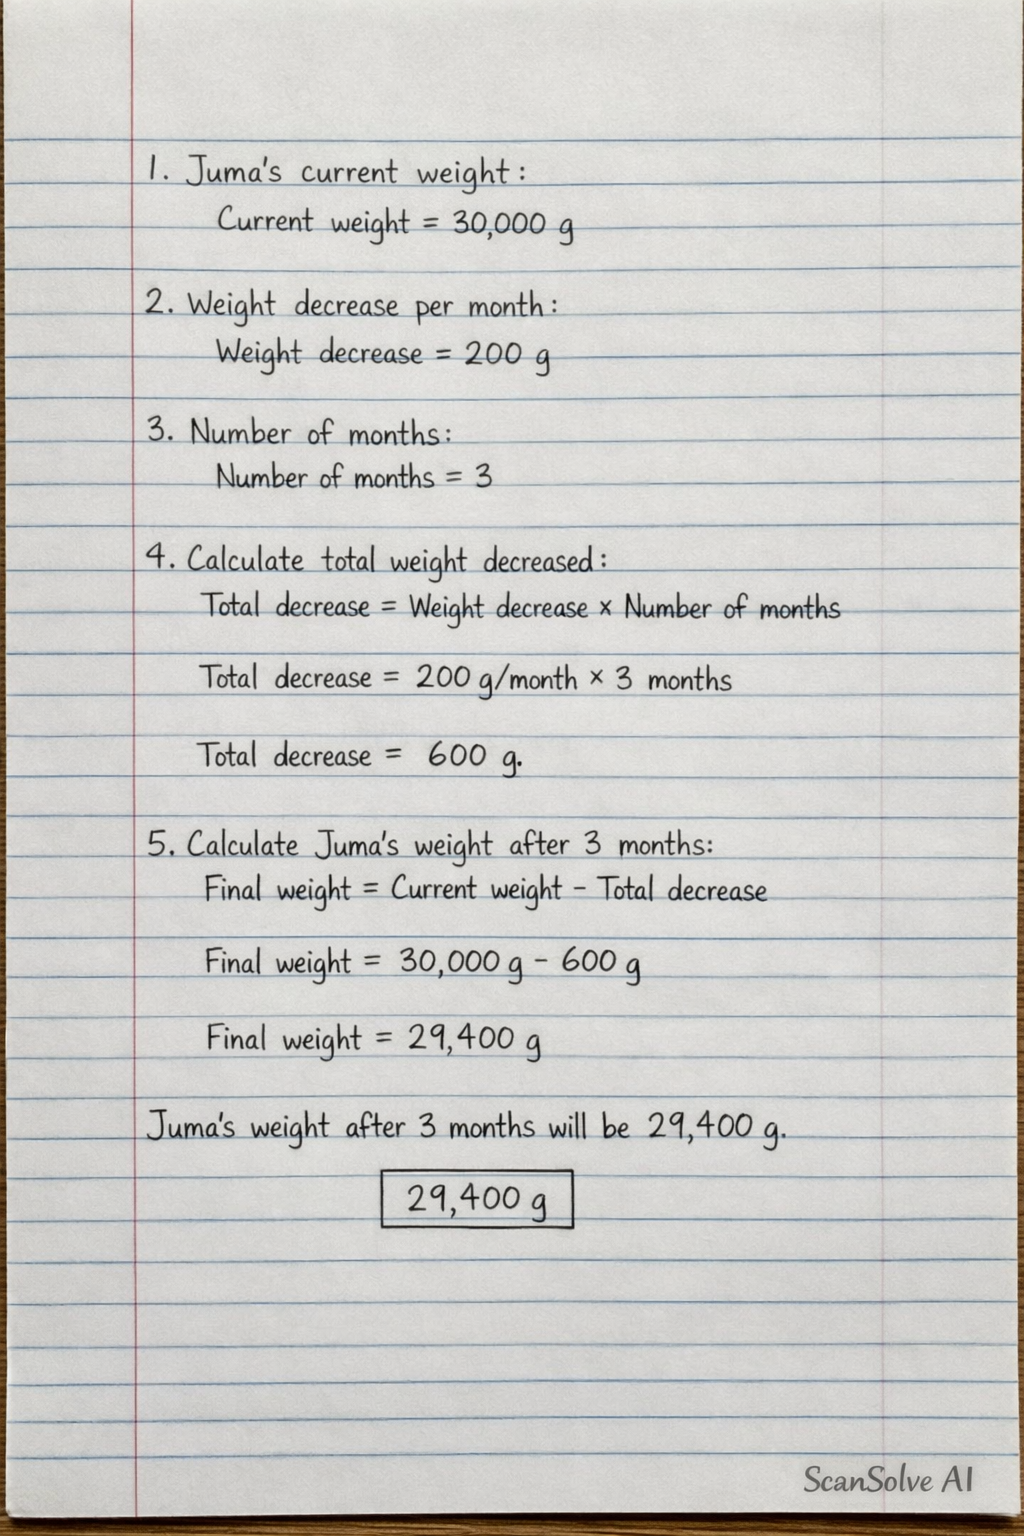 1. Juma's current weight:
Current weight = 30,000 g
2. Weight decrease per month:
Weight decrease = 200 g
3. Number of months:
Number of months = 3
4. Calculate total weight decreased:
Total decrease = Weight decrease × Number of months
Total decrease = 200 g/month × 3 months
Total decrease = 600 g.
5. Calculate Juma's weight after 3 months:
Final weight = Current weight - Total decrease
Final weight = 30,000 g - 600 g
Final weight = 29,400 g
Juma's weight after 3 months will be 29,400 g.
29,400 g
ScanSolve AI